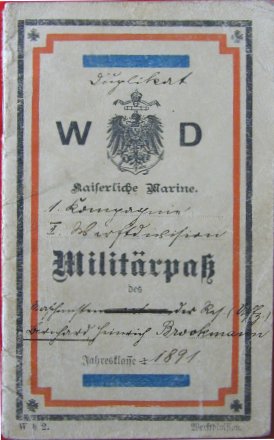 Duplikat
W D
Kaiserliche Marine.
1. Kompagnie
II. Werftdivision
Militärpaß
des
der Res.
Bernhard Heinrich Brookmann
Jahresklasse: 1891
W § 2. Werftdivision.